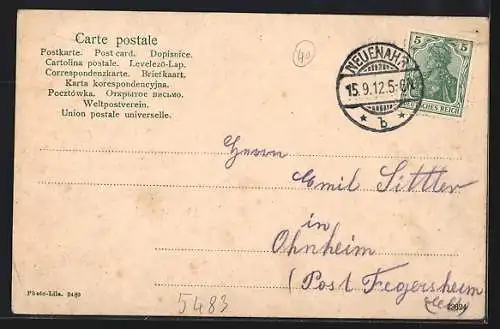 Carte postale
Postkarte. Post card. Dopisnice.
Cartolina postale. Levelező-Lap.
Correspondenzkarte. Briefkaart.
Karta korespondencyjna.
Pocztówka. Открытое письмо.
Weltpostverein.
Union postale universelle.
40
NEUENAHR
15.9.12.5-6N
* b *
5 5
DEUTSCHES REICH
Herrn
Emil Sittler
in
Ohnheim
(Post Fegersheim
Photo-Lila. 2489
5483